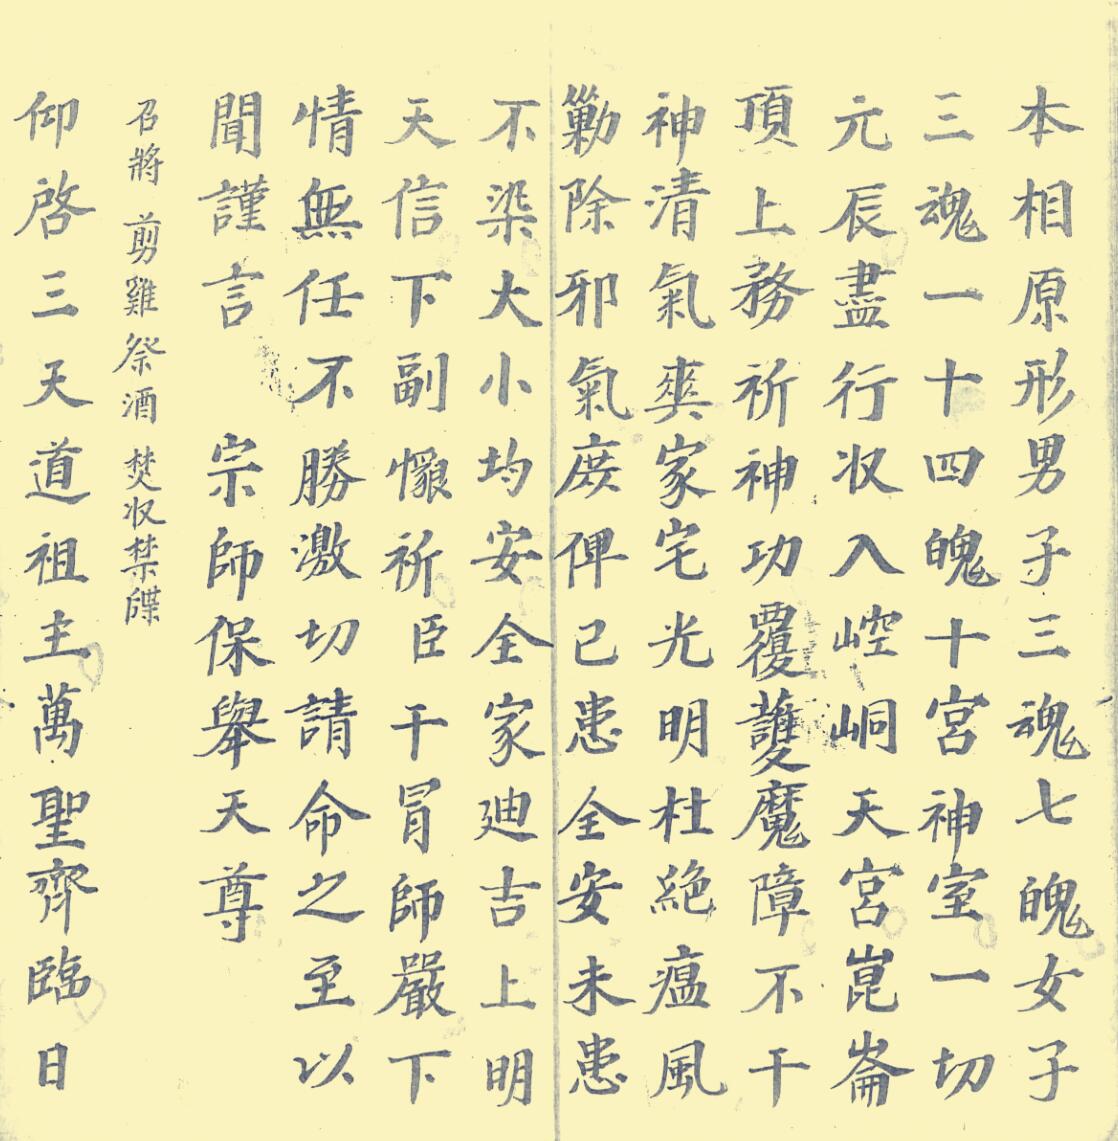 本相原形男子三魂七魄女子
三魂一十四魄十宮神室一切
元辰盡行收入崆峒天宮崑崙
頂上務祈神功覆護魔障不干
神清氣爽家宅光明杜絕瘟風
勦除邪氣庶俾已患全安未患
不染大小均安全家廸吉上明
天信下副懷祈臣干冒師嚴下
情無任不勝激切請命之至以
聞謹言　宗師保舉天尊
召將 剪雞祭酒 焚收禁牒
仰啓三天道祖主萬聖齊臨日